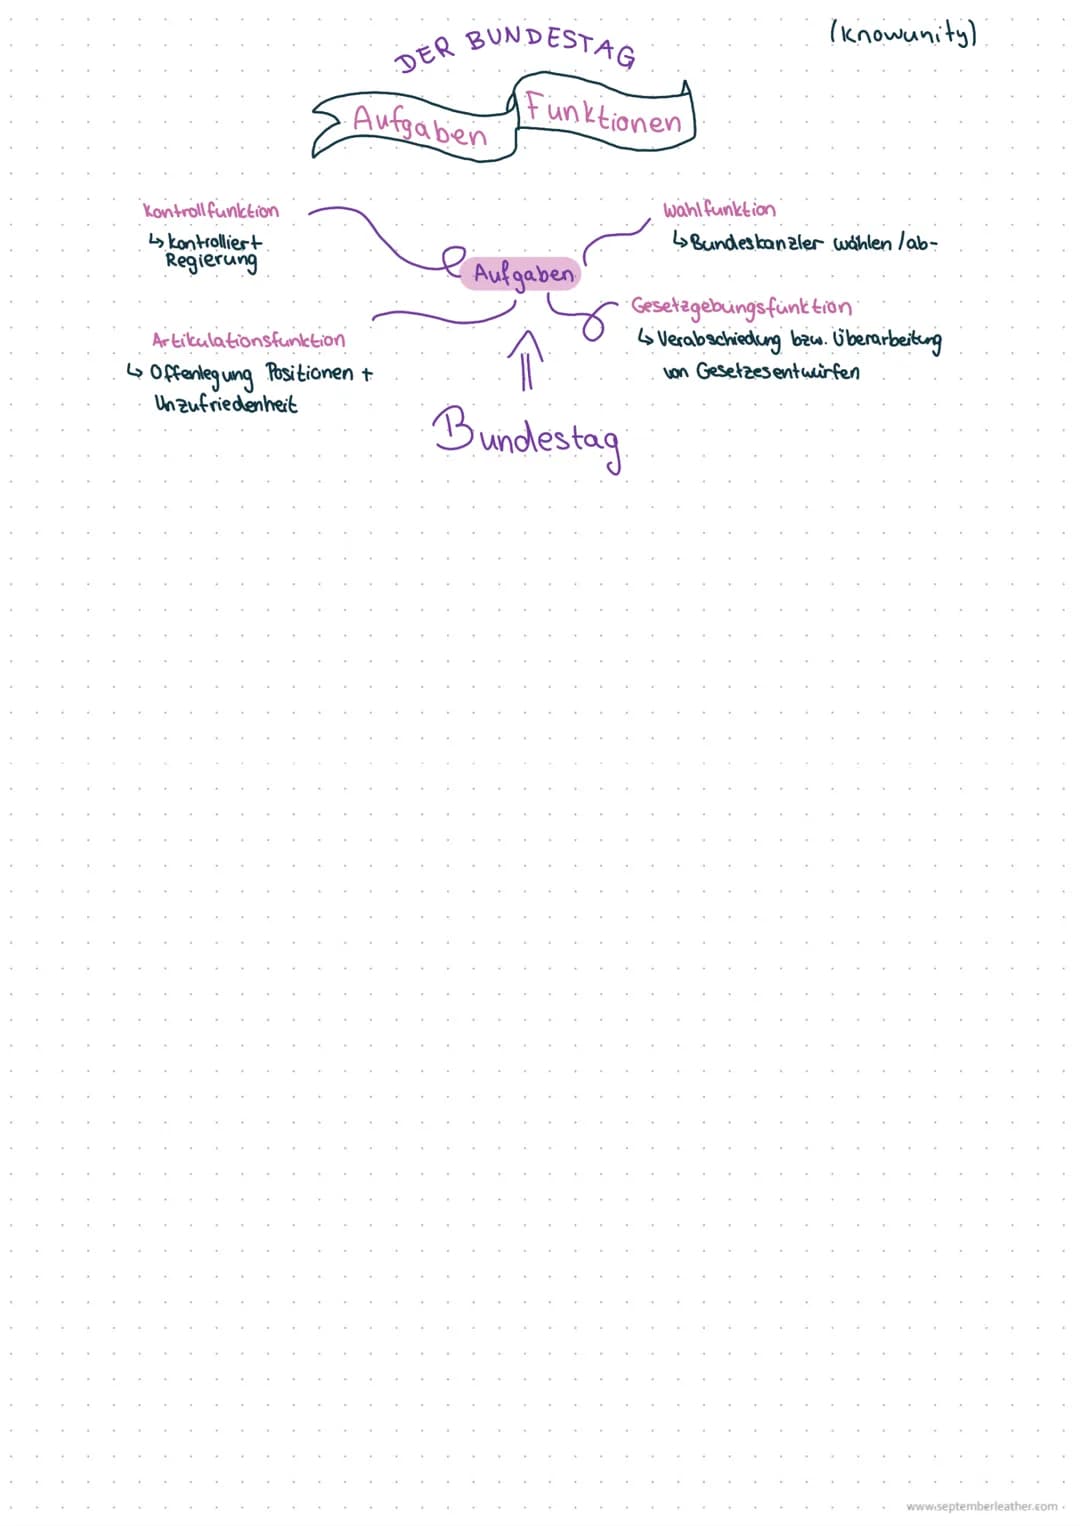 (Knowunity)
DER BUNDESTAG
Aufgaben Funktionen
Kontrollfunktion
↳ kontrolliert
Regierung
Wahlfunktion
↳ Bundeskanzler wählen /ab-
Aufgaben
Artikulationsfunktion
↳ Offenlegung Positionen +
Unzufriedenheit
Gesetzgebungsfunktion
↳ Verabschiedung bzw. Überarbeitung
von Gesetzesentwürfen
Bundestag
www.septemberleather.com